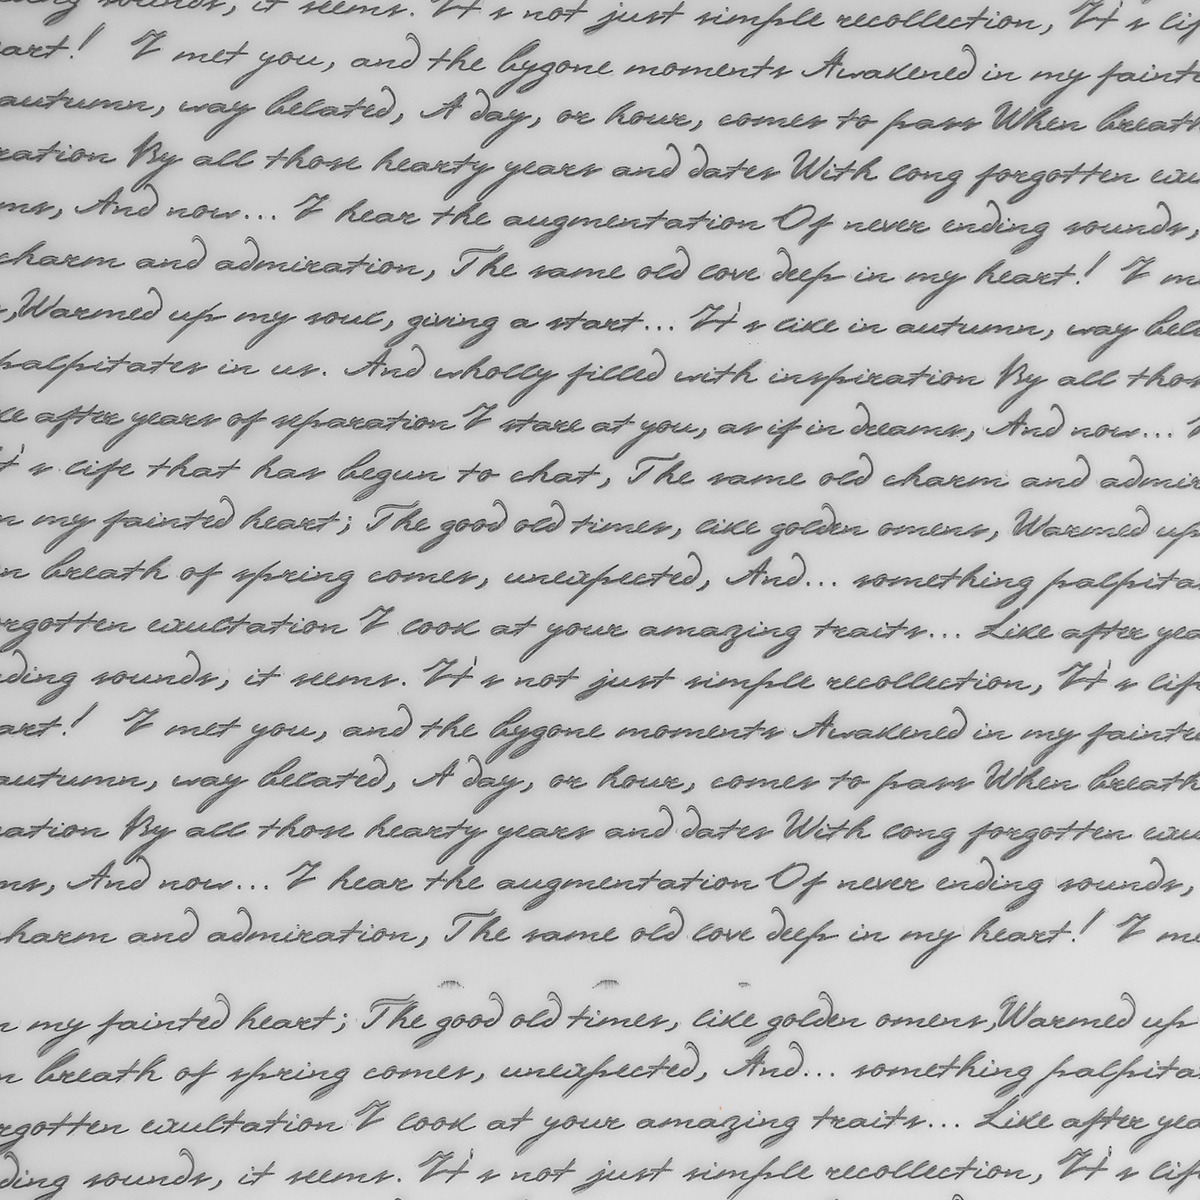 ding sounds, it seems. It's not just simple recollection, It's lif
eart! I met you, and the bygone moments Awakened in my fainte
autumn, way belated, A day, or hour, comes to pass When breath
ration By all those hearty years and dates With long forgotten exu
ms, And now... I hear the augmentation Of never ending sounds,
charm and admiration, The same old love deep in my heart! I m
s, Warmed up my soul, giving a start... It's like in autumn, way bel
palpitates in us. And wholly filled with inspiration By all thos
ke after years of separation I stare at you, as if in dreams, And now... I
It's life that has begun to chat, The same old charm and admir
n my fainted heart; The good old times, like golden omens, Warmed up
n breath of spring comes, unexpected, And... something palpita
orgotten exultation I look at your amazing traits... Like after yea
ding sounds, it seems. It's not just simple recollection, It's life
art! I met you, and the bygone moments Awakened in my fainte
autumn, way belated, A day, or hour, comes to pass When breath
ration By all those hearty years and dates With long forgotten exu
ms, And now... I hear the augmentation Of never ending sounds,
charm and admiration, The same old love deep in my heart! I me
n my fainted heart; The good old times, like golden omens, Warmed up
n breath of spring comes, unexpected, And... something palpita
rgotten exultation I look at your amazing traits... Like after yea
ding sounds, it seems. It's not just simple recollection, It's lif